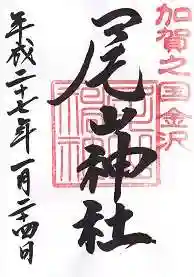 加賀之国金沢
尾山神社
平成二十七年一月二十四日